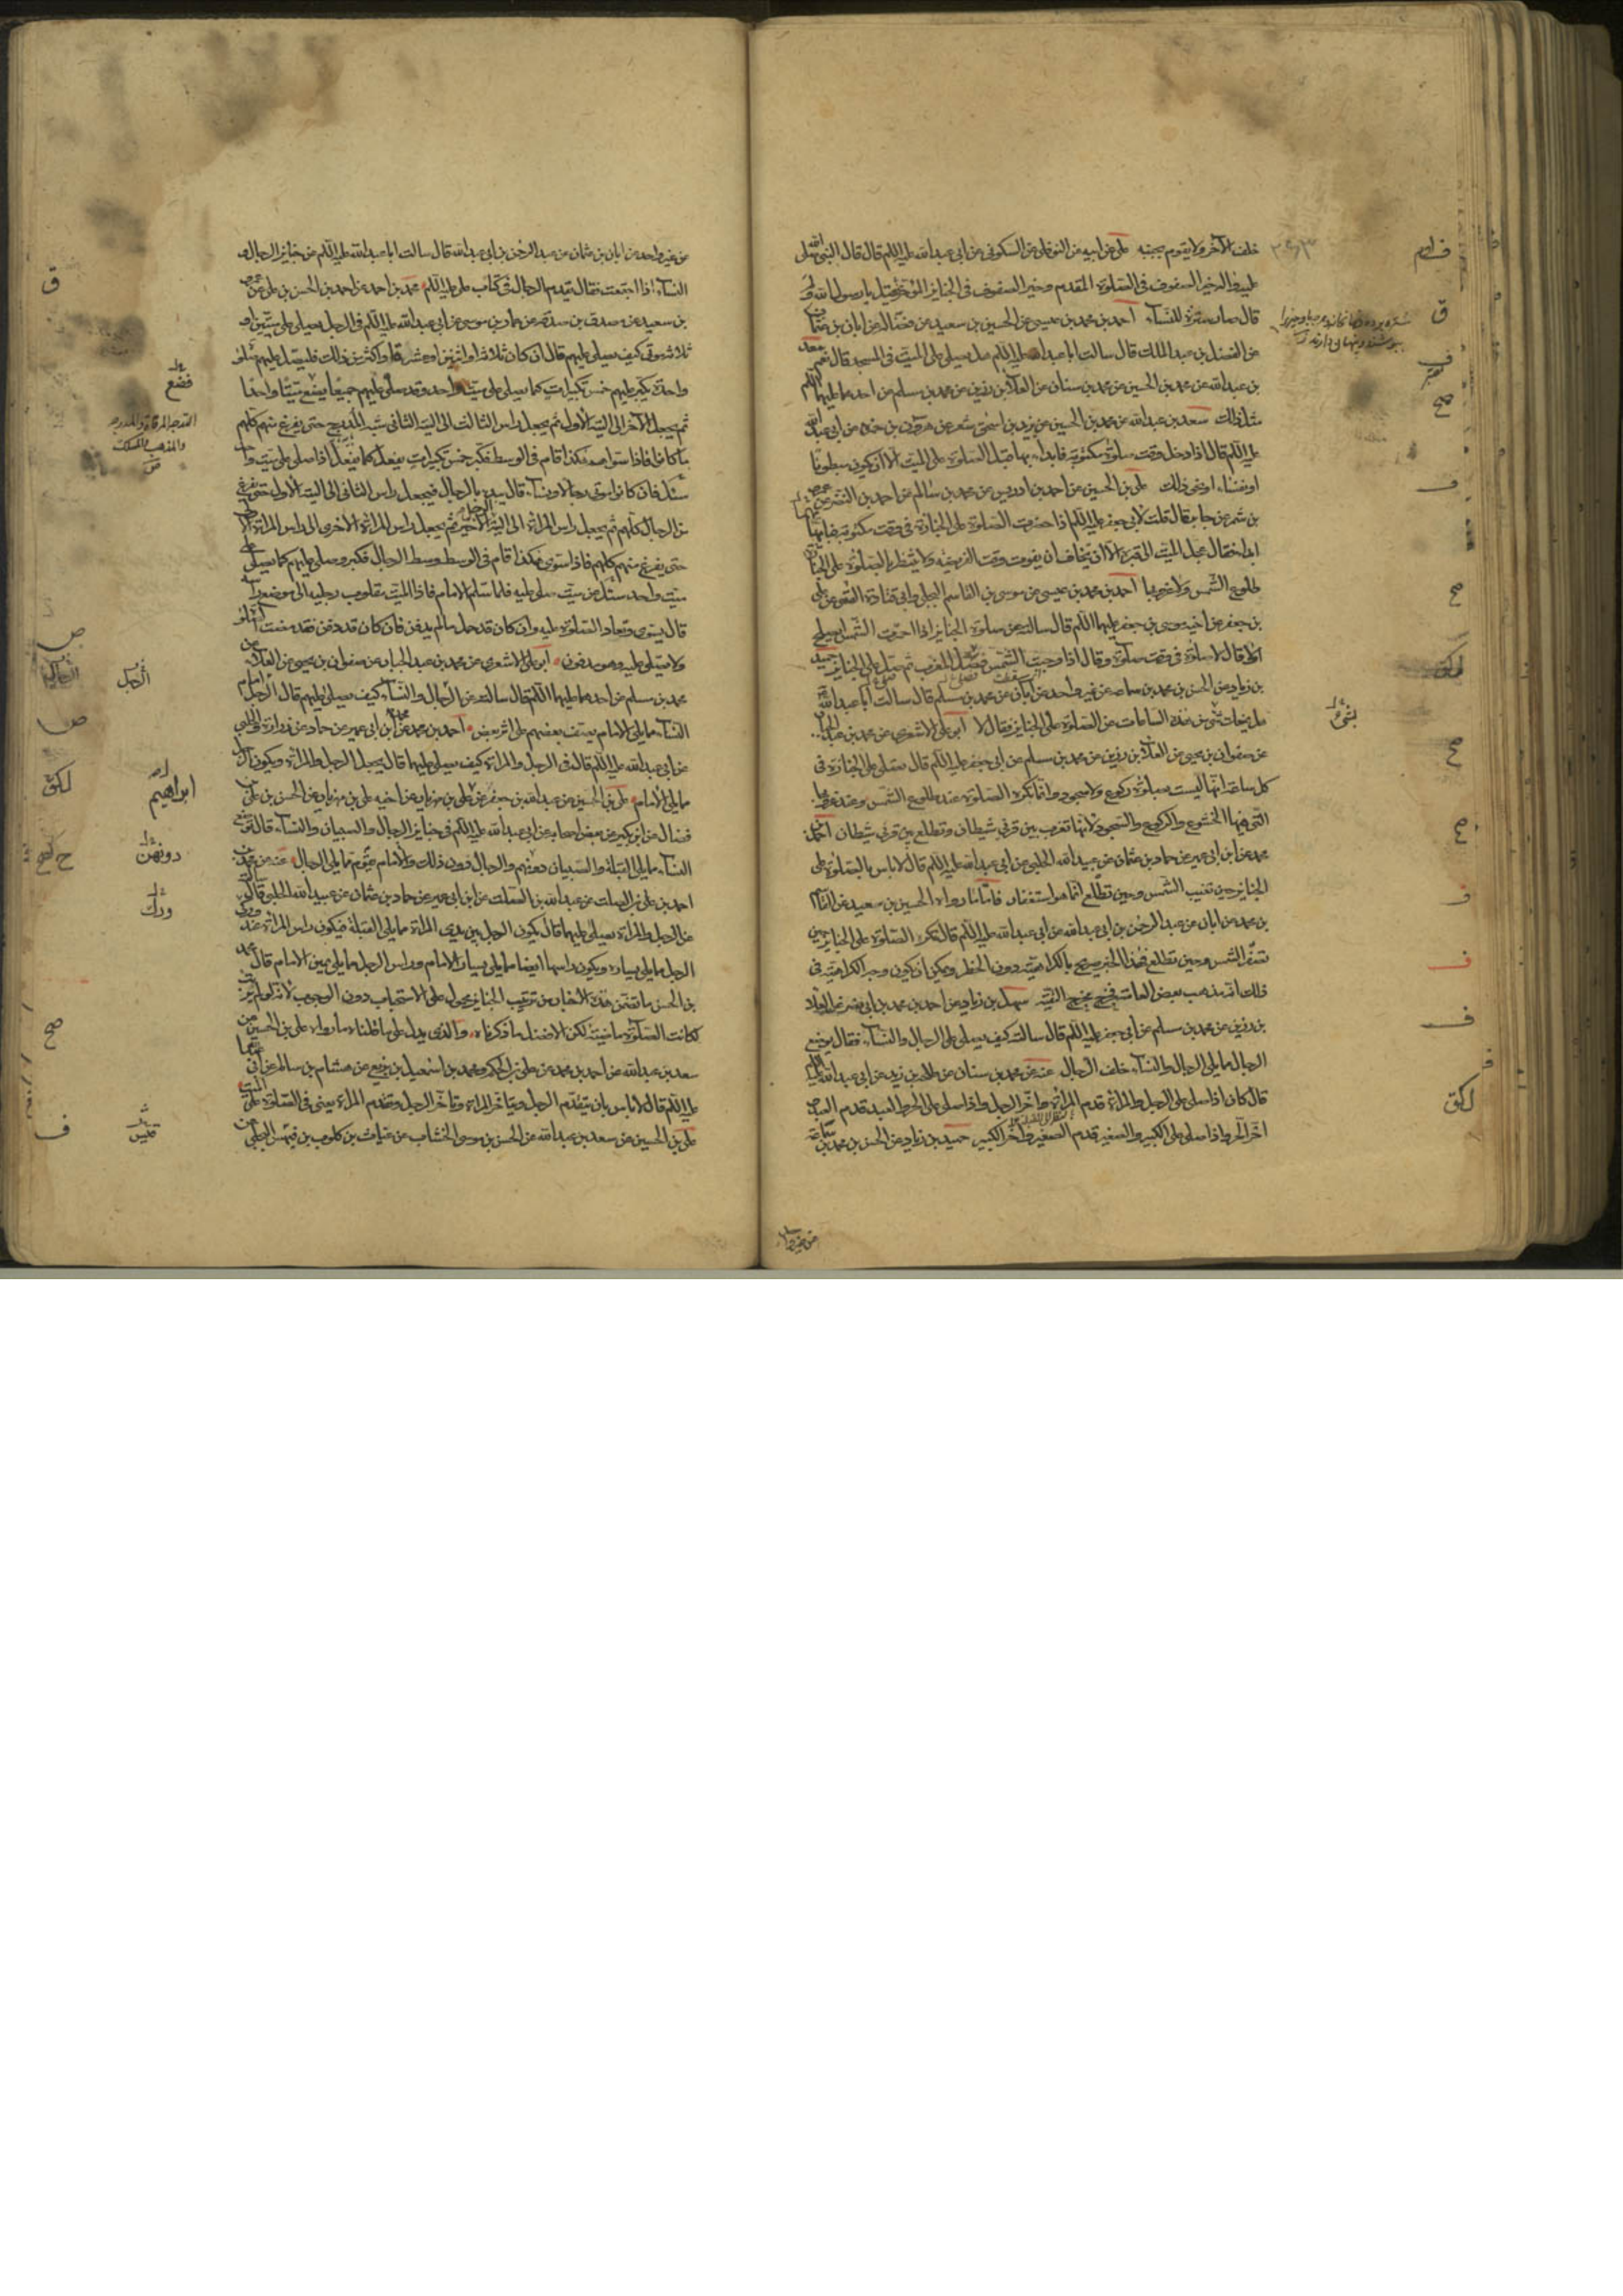 خلف الآخر ولا يقوم بجنبه علي عن ابيه عن النوفلي عن السكوني عن ابي عبد الله عليه السلم قال قال النبي صلى الله
عليه واله خير الصفوف في الصلوة المقدم وخير الصفوف في الجنايز المؤخر قيل يا رسول الله ولم
قال صار سترة للنساء احمد بن محمد بن عيسى عن الحسين بن سعيد عن فضالة عن ابان بن عثمان
عن الفضل بن عبد الملك قال سالت ابا عبد الله عليه السلم هل يصلى على الميت في المسجد قال نعم سعد
بن عبد الله عن محمد بن الحسين عن محمد بن سنان عن العلا بن رزين عن محمد بن مسلم عن احدهما عليهما السلم
مثل ذلك سعد بن عبد الله عن محمد بن الحسين عن يزيد بن اسحق شعر عن هرون بن حمزه عن ابي عبد الله
عليه السلم قال اذا دخل وقت صلوة مكتوبة فابدا بها قبل الصلوة على الميت الا ان يكون مبطونا
او نفساء او نحو ذلك علي بن الحسين عن احمد بن ادريس عن محمد بن سالم عن احمد بن النضر عن عمرو
بن شمر عن جابر قال قلت لابي جعفر عليه السلم اذا حضرت الصلوة على الجنازة في وقت مكتوبة فبايهما
ابدا فقال عجل الميت الى قبره الا ان تخاف ان يفوت وقت الفريضه ولا ينتظر بالصلوة على الجنازة
طلوع الشمس ولا غروبها احمد بن محمد بن عيسى عن موسى بن القاسم البجلي وابي قتادة القمي عن علي
بن جعفر عن اخيه موسى بن جعفر عليهما السلم قال سالته عن صلوة الجنايز اذا احمرت الشمس ايصلح
او لا قال لا صلوة في وقت صلوة وقال اذا وجبت الشمس فصل المغرب ثم صل على الجنايز حميد
بن زياد عن الحسن بن محمد بن سماعه عن غير واحد عن ابان عن محمد بن مسلم قال سالت ابا عبد الله
هل يمنعك شيء من هذه الساعات عن الصلوة على الجنايز فقال لا ابو علي الاشعري عن محمد بن عبد الجبار
عن صفوان بن يحيى عن العلا بن رزين عن محمد بن مسلم عن ابي جعفر عليه السلم قال تصلى على الجنازة في
كل ساعة انها ليست بصلوة ركوع ولا سجود وانما تكره الصلوة عند طلوع الشمس وعند غروبها
التي فيها الخشوع والركوع والسجود لانها تغرب بين قرني شيطان وتطلع بين قرني شيطان احمد بن
محمد عن ابن ابي عمير عن حماد بن عثمان عن عبيد الله الحلبي عن ابي عبد الله عليه السلم قال لا باس بالصلوة على
الجنايز حين تغيب الشمس وحين تطلع انما هو استغفار فاما ما رواه الحسين بن سعيد عن القاسم
بن محمد عن ابان عن عبد الرحمن بن ابي عبد الله عن ابي عبد الله عليه السلم قال تكره الصلوة على الجنايز حين
تصفر الشمس وحين تطلع فهذا الخبر صريح بالكراهية دون الحظر ويمكن ان يكون وجه الكراهية في
ذلك انه مذهب بعض العامة فخرج مخرج التقية سهل بن زياد عن احمد بن محمد بن ابي نصر عن العلا
بن رزين عن محمد بن مسلم عن ابي جعفر عليه السلم قال سالته كيف يصلى على الرجال والنساء فقال يوضع
الرجال مما يلي الرجال والنساء خلف الرجال عنه عن محمد بن سنان عن طلحة بن زيد عن ابي عبد الله عليه السلم
قال كان اذا صلى على الرجل والمراة قدم المراة واخر الرجل واذا صلى على الحر والعبد قدم العبد
اخر الحر واذا صلى على الكبير والصغير قدم الصغير واخر الكبير حميد بن زياد عن الحسن بن محمد بن سماعة
عن غير واحد
عن غير واحد عن ابان بن عثمان عن عبد الرحمن بن ابي عبد الله قال سالت ابا عبد الله عليه السلم عن جنايز الرجال و
النساء اذا اجتمعت فقال يقدم الرجال في كتاب علي عليه السلم محمد بن احمد عن احمد بن الحسن بن علي عن عمرو
بن سعيد عن مصدق بن صدقة عن عمار بن موسى عن ابي عبد الله عليه السلم في الرجل يصلي على ميتين او
ثلاثة موتى كيف يصلي عليهم قال ان كان ثلاثة او اثنين او عشرة او اكثر من ذلك فليصل عليهم صلوة
واحدة يكبر عليهم خمس تكبيرات كما يصلي على ميت واحد وقد صلى عليهم جميعا يضع ميتا واحدا
ثم يجعل الآخر الى الية الاول ثم يجعل راس الثالث الى الية الثاني شبه المدرج حتى يفرغ منهم كلهم
ما كانوا فاذا سواهم هكذا قام في الوسط فكبر خمس تكبيرات يفعل كما يفعل اذا صلى على ميت واحد
سئل فان كانوا موتى رجالا ونساء قال يبدء بالرجال فيجعل راس الثاني الى الية الاول حتى يفرغ
من الرجال كلهم ثم يجعل راس المراة الى الية الرجل الاخير ثم يجعل راس المراة الاخرى الى راس المراة الاولى
حتى يفرغ منهم كلهم فاذا سوى هكذا قام في الوسط وسط الرجال فكبر وصلى عليهم كما يصلي على
ميت واحد سئل عن ميت صلى عليه فلما سلم الامام فاذا الميت مقلوب رجليه الى موضع راسه
قال يسوى وتعاد الصلوة عليه وان كان قد حمل ما لم يدفن فان كان قد دفن فقد مضت الصلوة
ولا يصلى عليه وهو مدفون ابو علي الاشعري عن محمد بن عبد الجبار عن صفوان بن يحيى عن العلا عن
محمد بن مسلم عن احدهما عليهما السلم قال سالته عن الرجال والنساء كيف يصلى عليهم قال الرجل امام
النساء مما يلي الامام يصف بعضهم على اثر بعض احمد بن محمد عن ابن ابي عمير عن حماد عن زرارة والحلبي
عن ابي عبد الله عليه السلم قال في الرجل والمراة كيف يصلى عليهما قال يجعل الرجل والمراة ويكون الرجل
مما يلي الامام علي بن الحسين عن عبد الله بن جعفر عن علي بن مهزيار عن اخيه علي بن مهزيار عن الحسن بن علي بن
فضال عن ابن بكير عن بعض اصحابه عن ابي عبد الله عليه السلم في جنايز الرجال والصبيان والنساء قال توضع
النساء مما يلي القبلة والصبيان دونهم والرجال دون ذلك والامام يقوم مما يلي الرجال عنه عن محمد بن
احمد بن علي بن الصلت عن عبد الله بن الصلت عن ابن ابي عمير عن حماد بن عثمان عن عبيد الله الحلبي قال سالته
عن الرجل والمراة يصلى عليهما قال يكون الرجل بين يدي المراة مما يلي القبلة فيكون راس المراة عند وركي
الرجل مما يلي يساره ويكون راسها ايضا مما يلي يسار الامام وراس الرجل مما يلي يمين الامام قال محمد
بن الحسن ما تضمن هذه الاخبار من ترتيب الجنايز محمول على الاستحباب دون الوجوب لانه لو لم يرتب
لكانت الصلوة ماضية لكن الافضل ما ذكرناه والذي يدل على ما قلناه ما رواه علي بن الحسين عن
سعد بن عبد الله عن احمد بن محمد عن علي بن الحكم ومحمد بن اسمعيل بن بزيع عن هشام بن سالم عن ابي عبد الله
عليه السلم قال لا باس بان يقدم الرجل ويتاخر المراة وتاخر الرجل وتقدم المراة يعني في الصلوة على الميت
علي بن الحسين عن سعد بن عبد الله عن الحسن بن موسى الخشاب عن غياث بن كلوب بن فيهس البجلي عن
ق
فضع
صح
ف
الرجل
ابراهيم
لكق
دونهن
ورك